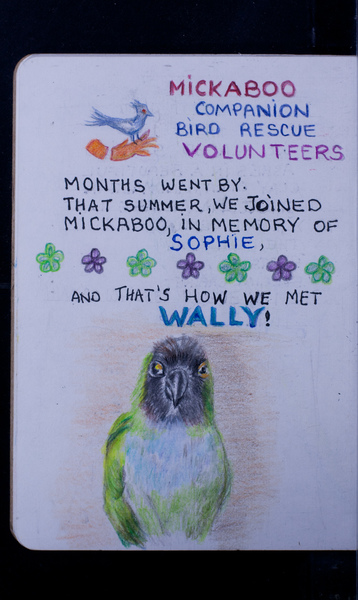 MICKABOO
COMPANION
BIRD RESCUE
VOLUNTEERS
MONTHS WENT BY.
THAT SUMMER, WE JOINED
MICKABOO, IN MEMORY OF
SOPHIE,
AND THAT'S HOW WE MET
WALLY!